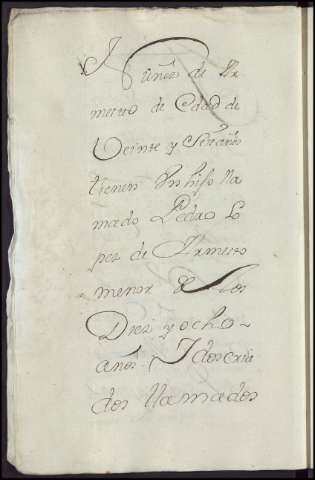 Nuñes de Ar
mesto de Edad de
Veinte y Seis años
tienen Un hijo lla
mado Pedro Lo
pez de Armesto
menor de los
Diez y ocho
años. I dos cria
dos llamados